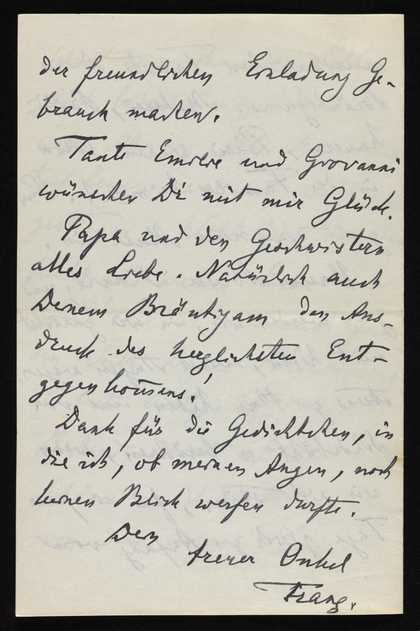 der freundlichen Einladung Ge-
brauch machen.
Tante Emilie und Giovanni
wünschen Dir mit mir Glück.
Papa und den Geschwistern
alles Liebe. Natürlich auch
Deinem Bräutigam den Aus-
druck des herzlichsten Ent-
gegenkom̄ens!
Dank für die Gedichtchen, in
die ich, ob meinen Augen, noch
keinen Blick werfen durfte.
Dein
treuer Onkel
Franz.